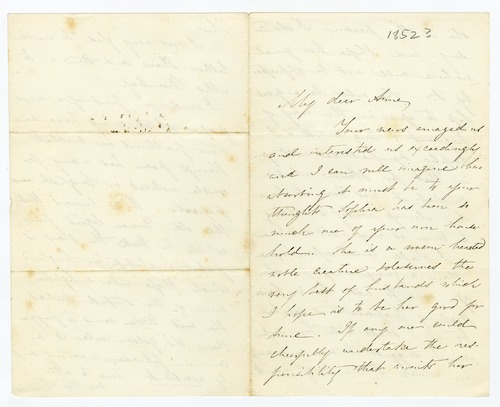 18523
My dear Anne,
Your news amazed us
and interested us exceedingly
and I can well imagine how
absorbing it must be to your
thoughts Sophia has been so
much one of your own house
hold. She is a warm hearted
noble creature & deserves the
very best of husbands which
I hope is to be her good for
tune. If any one could
cheerfully undertake the res-
ponsibility that awaits her